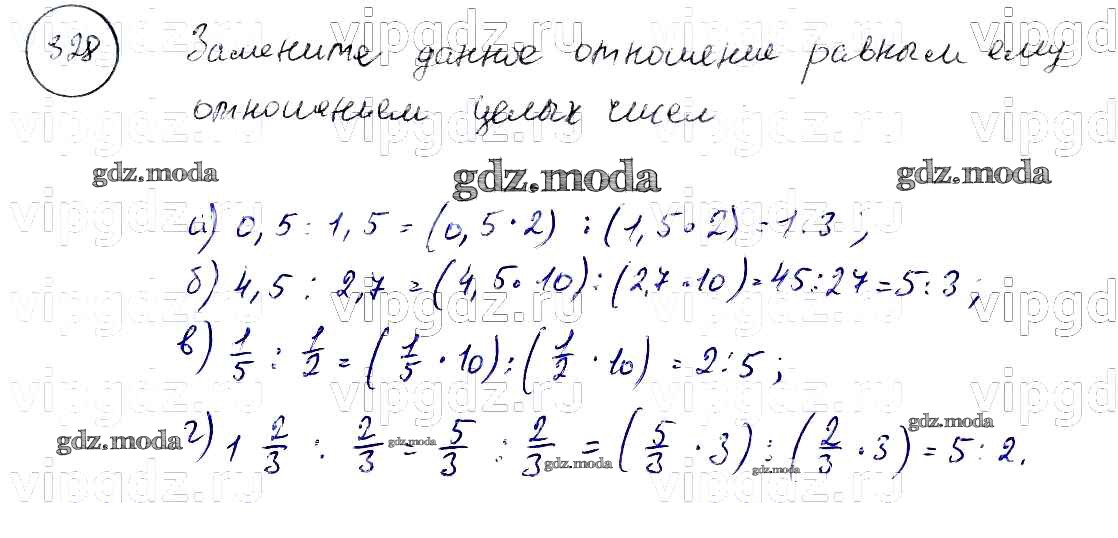 328 Замените данное отношение равным ему
отношением целых чисел
gdz.moda gdz.moda gdz.moda
а) 0,5 : 1,5 = (0,5 · 2) : (1,5 · 2) = 1 : 3 ;
б) 4,5 : 2,7 = (4,5 · 10) : (2,7 · 10) = 45 : 27 = 5 : 3 ;
в) 1/5 : 1/2 = (1/5 · 10) : (1/2 · 10) = 2 : 5 ;
gdz.moda г) 1 2/3 : 2/3 = 5/3 : 2/3 = (5/3 · 3) : (2/3 · 3) = 5 : 2.
gdz.moda gdz.moda gdz.moda gdz.moda
vipgdz.ru